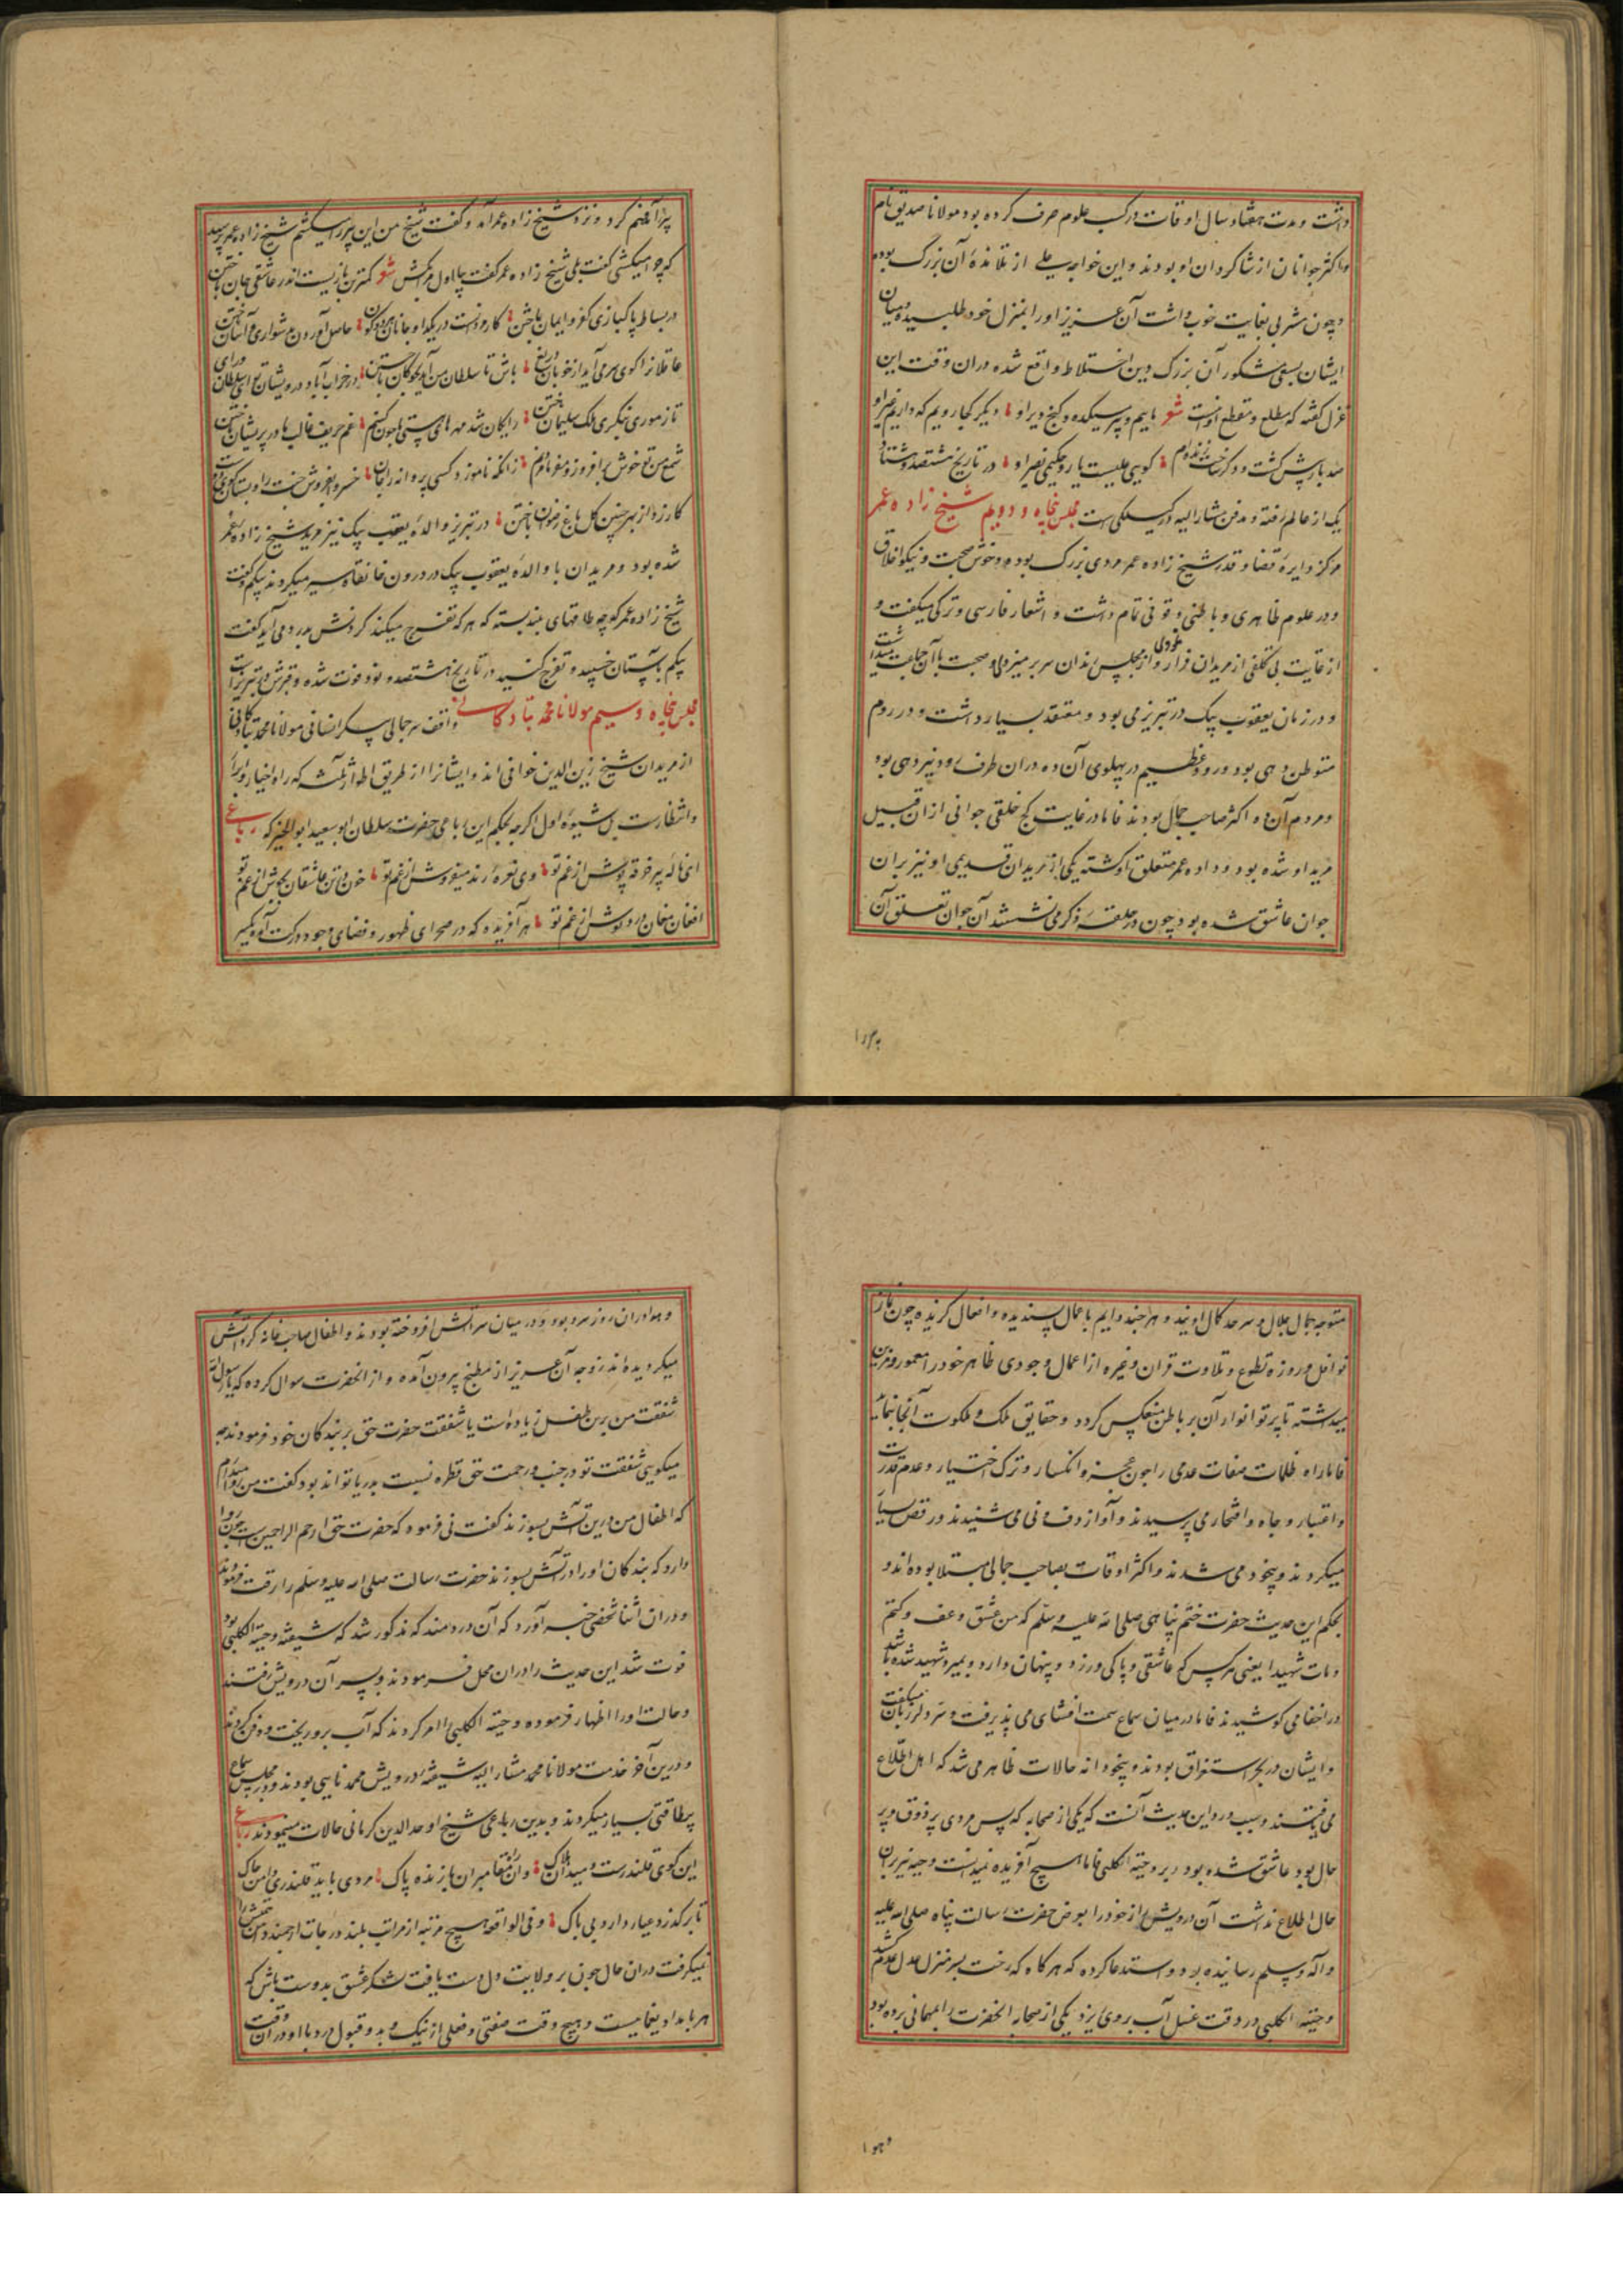 داشت و مدت هفتاد سال اوقات در کسب علوم صرف کرده بود مولانا صدیق نام
و اکثر جوانان از شاکردان او بودند و این خواجه علی از تلامذهٔ آن بزرگ بوده
و چون مشربی بغایت خوب داشت آن عزیز او را بمنزل خود طلبیده و میان
ایشان بسعی مشکور آن بزرگ دین اختلاط واقع شده در آن وقت این
غزل گفته که مطلع و مقطع اوست شعر ماییم و پیر میکده و کنج ویر او دیگر کجا رویم که داریم غیر او
صد بار پیش گشت و دگر کویی علیست یا رو حکیمی نصیر او در تاریخ هشتصد و هشتاد و
یک از عالم رفته و مدفن مشار الیه در کیسلکی است مجلس پنجاه و دویم شیخ زاده عمر
مرکز دایرهٔ قضا و قدر شیخ زاده عمر مردی بزرگ بوده و خوش صحبت و نیکو اخلاق
و در علوم ظاهری و باطنی وقوفی تمام داشت و اشعار فارسی و ترکی میکفت و
از غایت بی تکلفی از مریدان فرار نمودی و از مجلس رندان سر بر میزدی و صحبت با آن جماعت میداشت
و در زمان یعقوب بیک در تبریز می بود و معتقد بسیار داشت و در روم
متوطن دهی بود و رود عظیم در پهلوی آن ده و در آن طرف رود نیز دهی بود
و مردم آن ده اکثر صاحب جمال بودند فاما در غایت کج خلقی جوانی از آن قبیل
مرید او شده بود و داده عمر متعلق او کشته یکی از مریدان قدیمی او نیز بر آن
جوان عاشق شده بود چون در حلقهٔ ذکر می نشستند آن جوان تعلق آن
پیر را فهم کرد و نزد شیخ زاده عمر آمد و گفت شیخ من این پیر را میکشم شیخ زاده عمر پرسید
که چرا میکشی گفت بلی شیخ زاده عمر گفت بیا اول مرا بکش شعر کمترین بازیست اندر عاشقی جان باختن
در بساط پاکبازی کفر و ایمان باختن حاصل آوردن بدشواری و آسان باختن
باش تا سلطان من آید در خراب آباد درویشان
تاز موری ننگری ملک سلیمان باختن رایگان شد مهره‌های هستی ما چون کنم غم حریف غالب ما در پریشان باختن
شمع من تو خوش برافروز و زانکه ناموزد کسی پروانه را جان باختن خسرو بفروش جنت را و بستان کوی دوست
کار زد از بهر چنین گل باغ رضوان باختن در تبریز والدهٔ یعقوب بیک نیز مرید شیخ زاده عمر
شده بود و مریدان با والدهٔ یعقوب بیک در درون خانقاه سیر میکردند بیکم گفت
شیخ زاده عمر کوچه طاقهای بلند بسته که هر که تفرج میکند کردنش بدرد می آید گفت
بیکم بآستان خسپید و تفرج کنید در تاریخ هشتصد و نود فوت شده و قبرش در تبریز است
مجلس پنجاه و سیم مولانا محمد تبادکانی واقف سر جمالی سکر انسانی مولانا محمد تبادکانی
از مریدان شیخ زین الدین خوافی اند و ایشانرا از طریق اطوار ثلثه که راه اخیار و ابرار
و شطارست بل شیوهٔ اول اگرچه بحکم این رباعی حضرت سلطان ابو سعید ابو الخیر که رباعی
ای نالهٔ پیر خرقه پوش از غم تو وی نعرهٔ رند میفروش از غم تو خون در تن عاشقان بجوش از غم تو
افغان مغان درد نوش از غم تو هر آفریده که در صحرای ظهور و فضای وجود
متوجه جمال جلال و سرحد کمال اویند و هر چند دایم باعمال پسندیده و افعال کزیده چون نماز
نوافل و روزهٔ تطوع و تلاوت قران و غیره از اعمال وجودی ظاهر خود را معمور و مزین
میداشته تا پرتو انوار آن بر باطن منعکس کردد و حقایق ملک و ملکوت آنجا بنماید
فاما راه ظلمات صفات عدمی را چون عجز و انکسار و ترک اختیار و عدم قدرت
و اعتبار و جاه و افتخار می پرسیدند و آواز دف و نی می شنیدند و رقص بسیار
میکردند و بیخود می شدند و اکثر اوقات بصاحب جمالی مبتلا بوده اند و
بحکم این حدیث حضرت ختم پناهی صلی الله علیه و سلم که من عشق و عف و کتم
و مات شهیدا یعنی هر کس که عاشقی و پاکی ورزد و پنهان دارد و بمیرد شهید شده باشد
در اخفا می کوشیدند فاما در میان سماع سمت افشای می پذیرفت و سر دلبر زبان میکفت
و ایشان در بحر استغراق بودند و بیخودانه حالات ظاهر می شد که اهل اطلاع
می یافتند و سبب ورود این حدیث آنست که یکی از صحابه که پس مردی پر ذوق و پر
حال بود عاشق شده بود بر دحیة الکلبی فاما هیچ آفریده نمیدانست و دحیه نیز بر آن
حال اطلاع نداشت آن درویش از خود را بعرض حضرت رسالت پناه صلی الله علیه
و آله و سلم رسانیده بود و استدعا کرده که هر کاه که رخت بسر منزل عدم کشد
دحیة الکلبی در وقت غسل آب بر وی ریزد یکی از صحابه آنحضرت را بمهمانی برده بود
و هوا در آن روز سرد بود و در میان سرا آتش افروخته بودند و اطفال صاحب خانه کرد آتش
میکردیده اند زوجه آن عزیز از مطبخ بیرون آمده و از آنحضرت سوال کرده که یا رسول الله
شفقت من برین طفل زیاده است یا شفقت حضرت حق بر بندکان خود فرمودند چه
میکویی شفقت تو در جنب رحمت حق قطره نسبت بدریا تواند بود گفت من روا ندارم
که اطفال من درین آتش بسوزند گفت نی فرمود که حضرت حق ارحم الراحمین است چون روا
دارد که بندکان او را در آتش بسوزند حضرت رسالت صلی الله علیه و سلم را رقت
و در آن اثنا شخصی خبر آورد که آن دردمند که مذکور شد که شیفتهٔ دحیة الکلبی بود
فوت شد این حدیث را در آن محل فرمودند و بسر آن درویش رفتند
و حالت او را اظهار فرموده دحیة الکلبی را امر کردند که آب برو ریخت و دفن کردند
و درین آخر خدمت مولانا محمد مشار الیه شیفتهٔ درویش محمد نایی بودند و در مجلس سماع
بیطاقتی بسیار میکردند و بدین رباعی شیخ اوحد الدین کرمانی حالات مینمودند رباعی
این کوی قلندرست و میدان هلاک وین راه مقامران بازنده پاک مردی باید قلندری دامن چاک
تا برگذرد عیار وار و بی باک و فی الواقع هیچ مرتبه از مراتب بلند و درجات ارجمند
نمیکرفت در آن حال چون بر ولایت دل دست یافت لشکر عشق بدوست باش که
هر بامداد یغماییست و هیچ وقت صفتی و فعلی از نیک و بد و قبول و رد با او در آن وقت